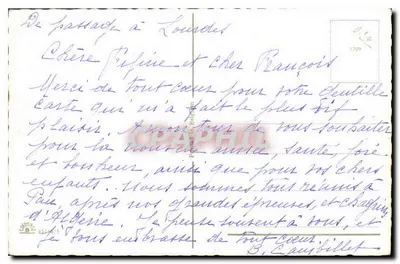 De passage à Lourdes
Chère Fifine et cher François
Merci de tout cœur pour votre gentille
carte qui m'a fait le plus vif
plaisir. A mon tour je vous souhaiter
pour la nouvelle année, santé, joie
et bonheur, ainsi que pour vos chers
enfants. Nous sommes tous réunis à
Pau, après nos grandes épreuves, et chagrins
d'Algérie. Je pense souvent à vous, et
je vous embrasse de tout cœur.